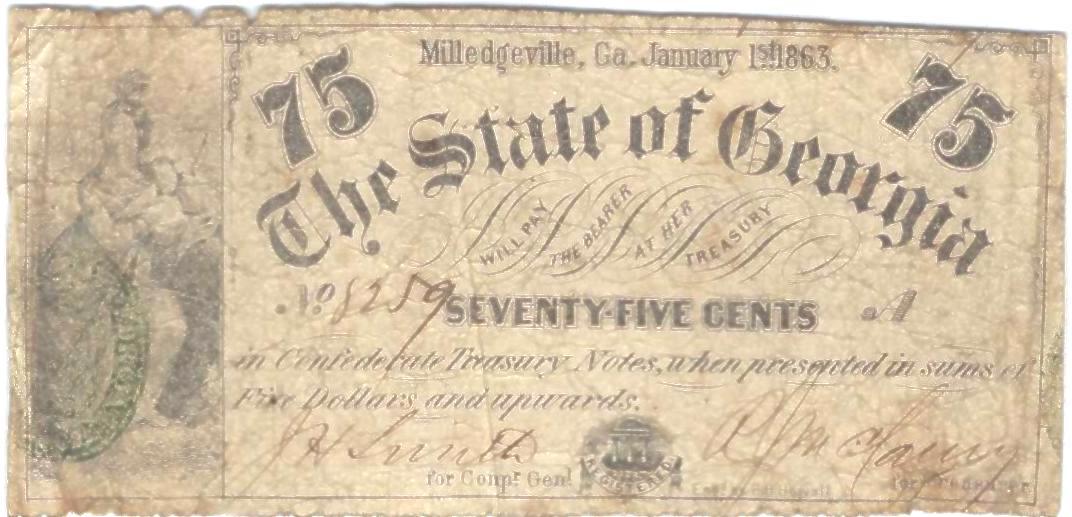 Milledgeville, Ga. January 1st 1863.
75
75
The State of Georgia
WILL PAY THE BEARER AT HER TREASURY
No 8259 SEVENTY-FIVE CENTS A
in Confederate Treasury Notes, when presented in sums of
Five Dollars and upwards.
J H Smith
for Compr. Genl.
REGISTERED
for Treasurer